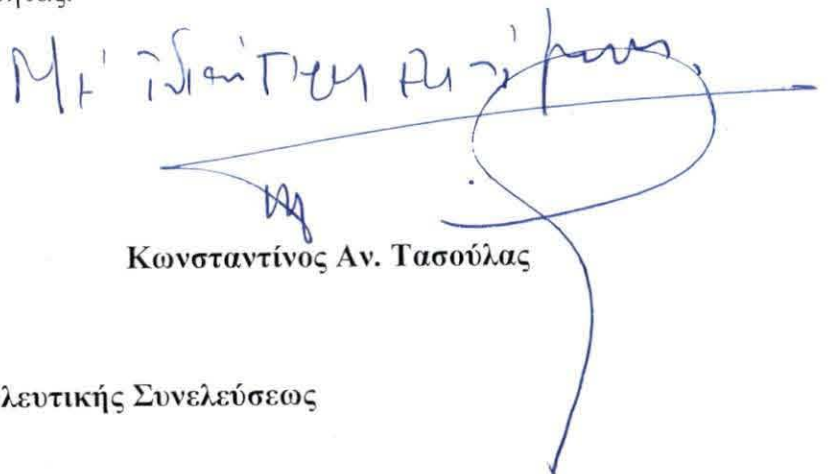 Μὲ ἰδιαίτερη ἐκτίμηση,
Κωνσταντίνος Αν. Τασούλας
λευτικής Συνελεύσεως